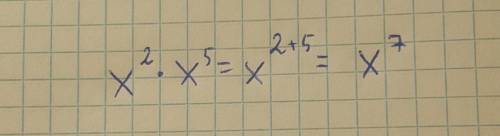 x² · x⁵ = x²⁺⁵ = x⁷